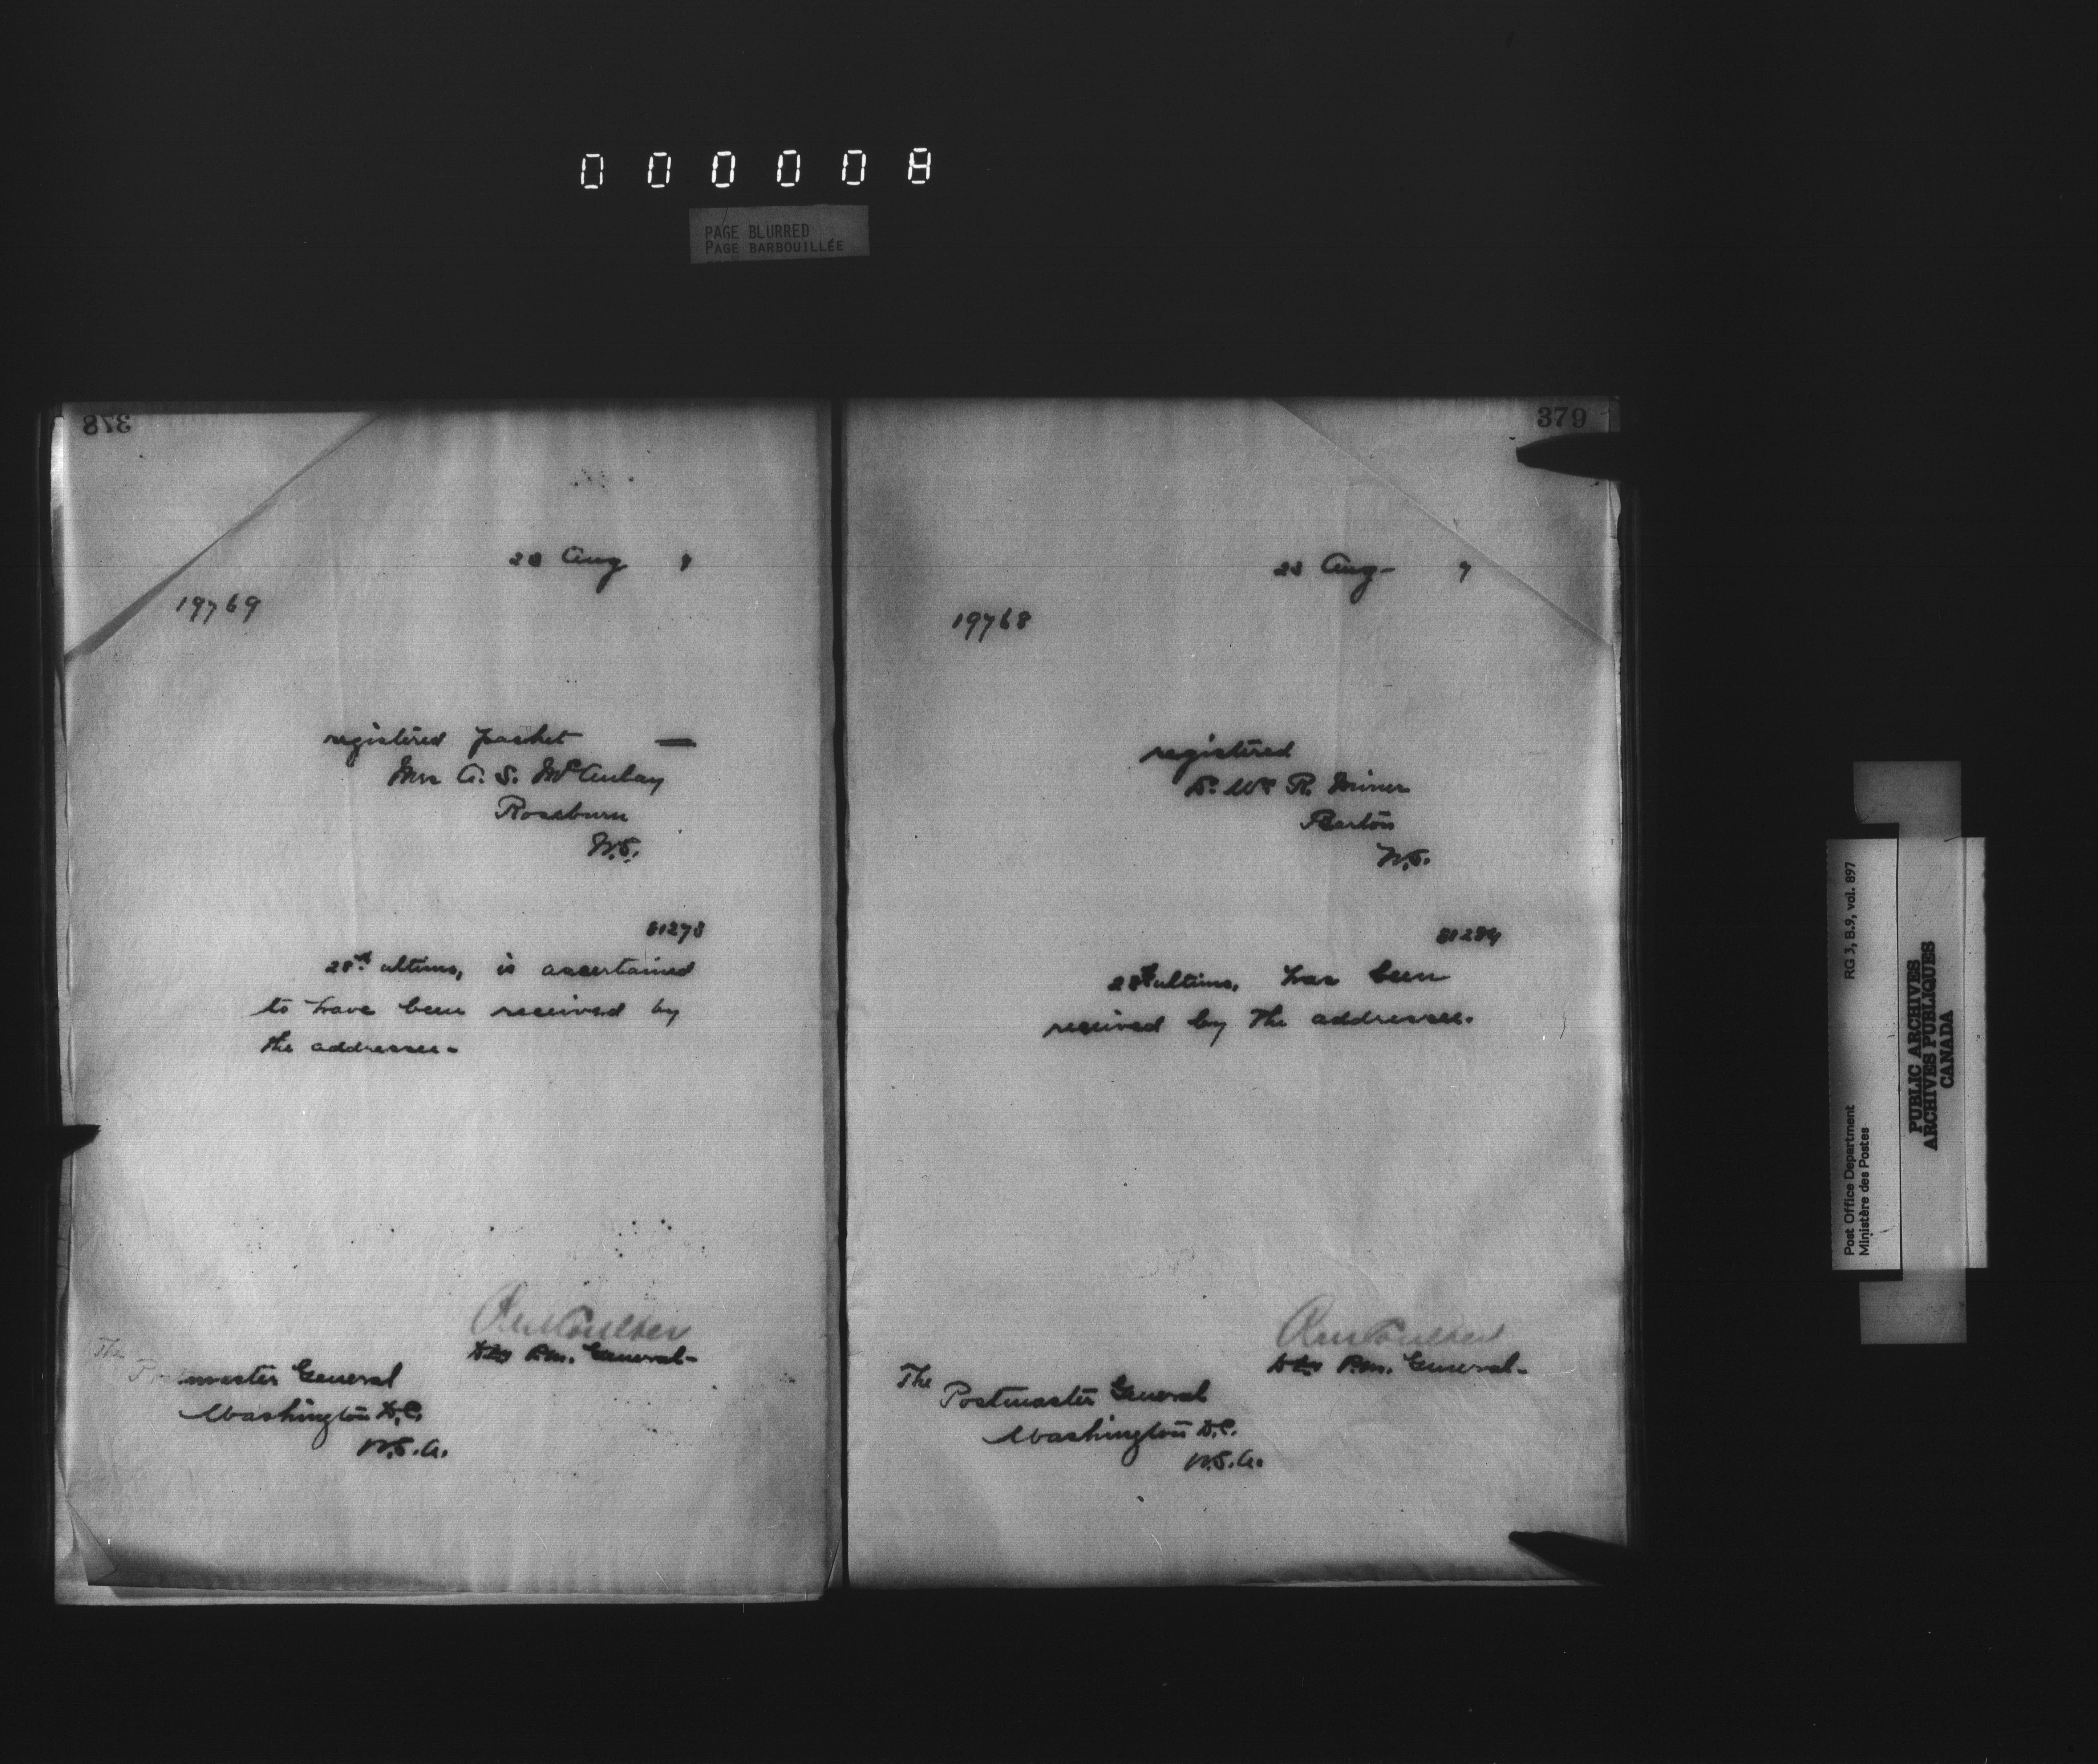 000008
PAGE BLURRED
PAGE BARBOUILLÉE
378
28 Aug
19769
registered packet —
Mrs A. S. McAulay
Roseburn
N.S.
81278
28th ultimo, is ascertained
to have been received by
the addressee -
RM Coulter
Dty P.M. General -
The
Postmaster General
Washington D.C.
U.S.A.
379
Aug - 7
19768
registered
Wm R. Miner
Barton
N.S.
28th ultimo, has been
received by the addressee.
RM Coulter
Dty P.M. General -
The
Postmaster General
Washington D.C.
U.S.A.
Post Office Department
Ministère des Postes
RG 3, B.9, vol. 897
PUBLIC ARCHIVES
ARCHIVES PUBLIQUES
CANADA